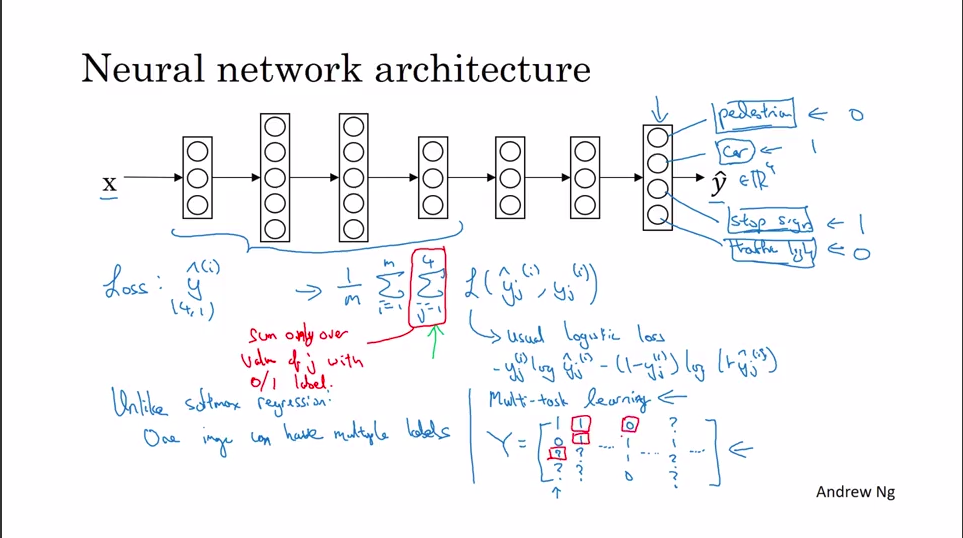 Neural network architecture
pedestrian ← 0
car ← 1
x
ŷ ∈ ℝ⁴
stop sign ← 1
traffic light ← 0
Loss: ŷ^(i) → 1/m Σ_{i=1}^{m} Σ_{j=1}^{4} L(ŷ_j^(i), y_j^(i))
(4,1)
Sum only over
value of j with
0/1 label.
↳ usual logistic loss
- y_j^(i) log ŷ_j^(i) - (1-y_j^(i)) log (1-ŷ_j^(i))
Unlike softmax regression:
One image can have multiple labels
Multi-task learning ←
Y =
1 1 0 ?
0 1 ... 1 ... ? ...
? ? 1 ?
? ? 0 ?
Andrew Ng